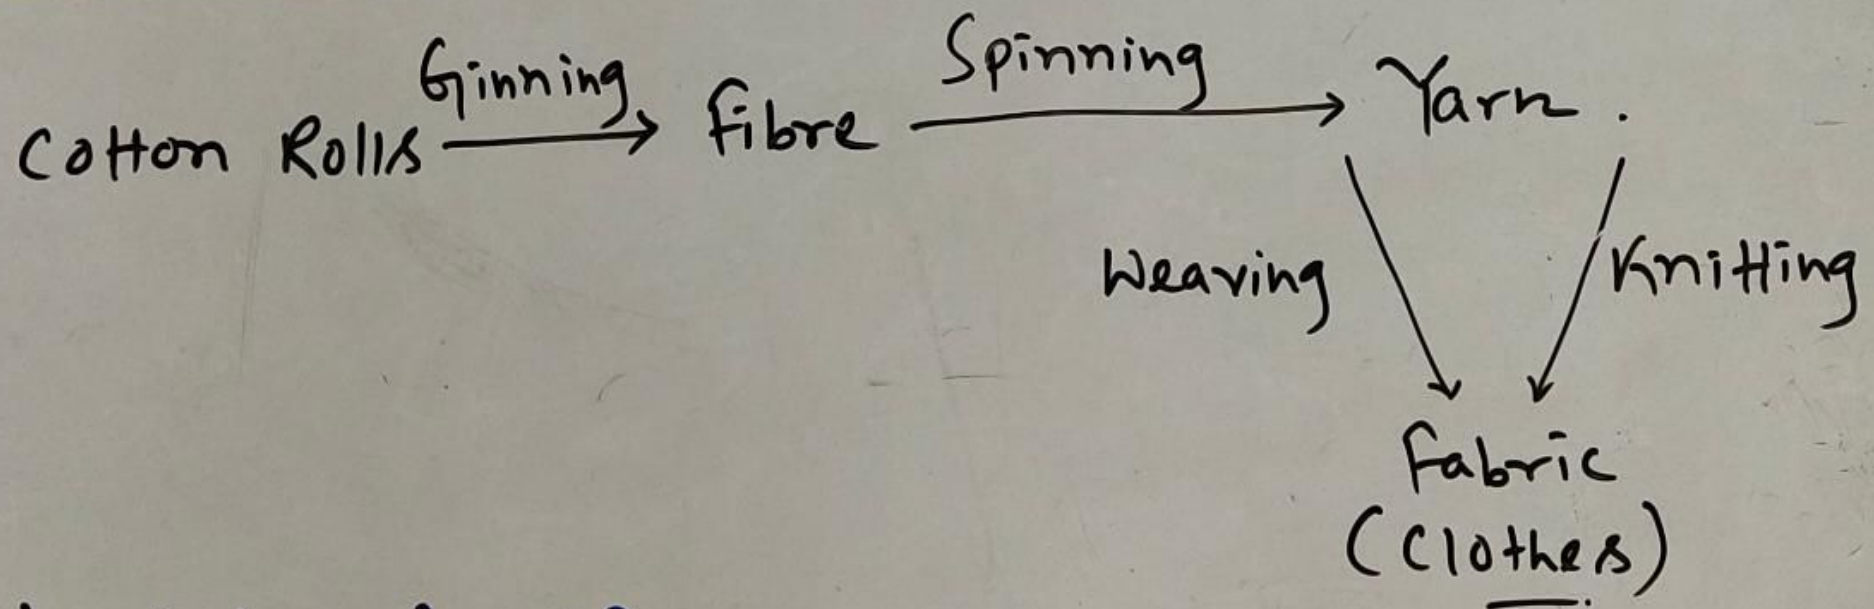 Cotton Rolls Ginning Fibre Spinning Yarn.
Weaving Knitting
Fabric
(Clothes)